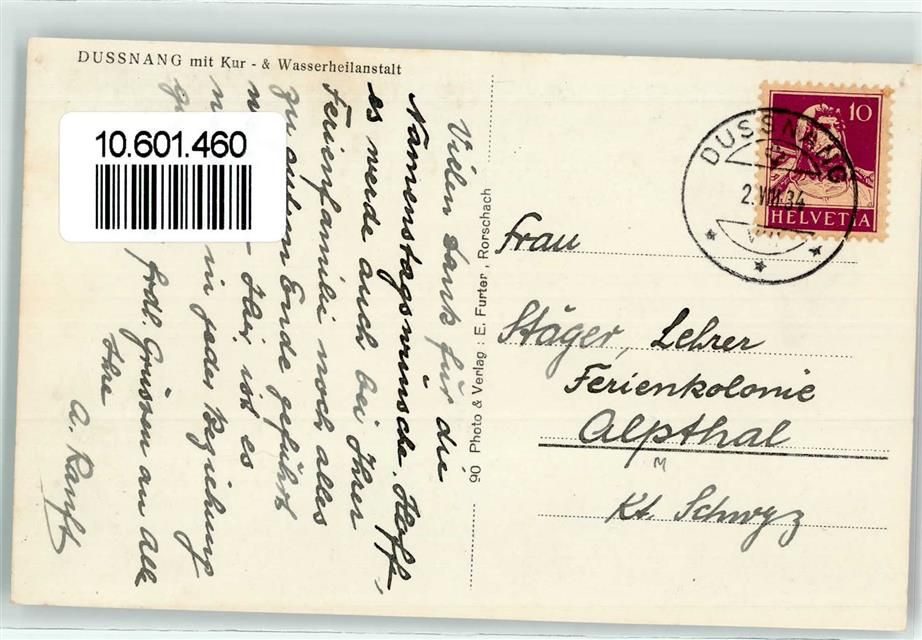 DUSSNANG mit Kur - & Wasserheilanstalt
10.601.460
Vielen Dank für die
Namenstagswünsche. Hoff.,
es werde auch bei Ihrer
Ferienfamilie noch alles
zu guten Ende geführt
Hier ist es
in jeder Beziehung
frdl. Grüssen an Alle
Ihre
A. Ranft
90 Photo & Verlag : E. Furter, Rorschach
10
HELVETIA
DUSSNANG
34
Frau
Stäger, Lehrer
Ferienkolonie
Alpthal
Kt. Schwyz